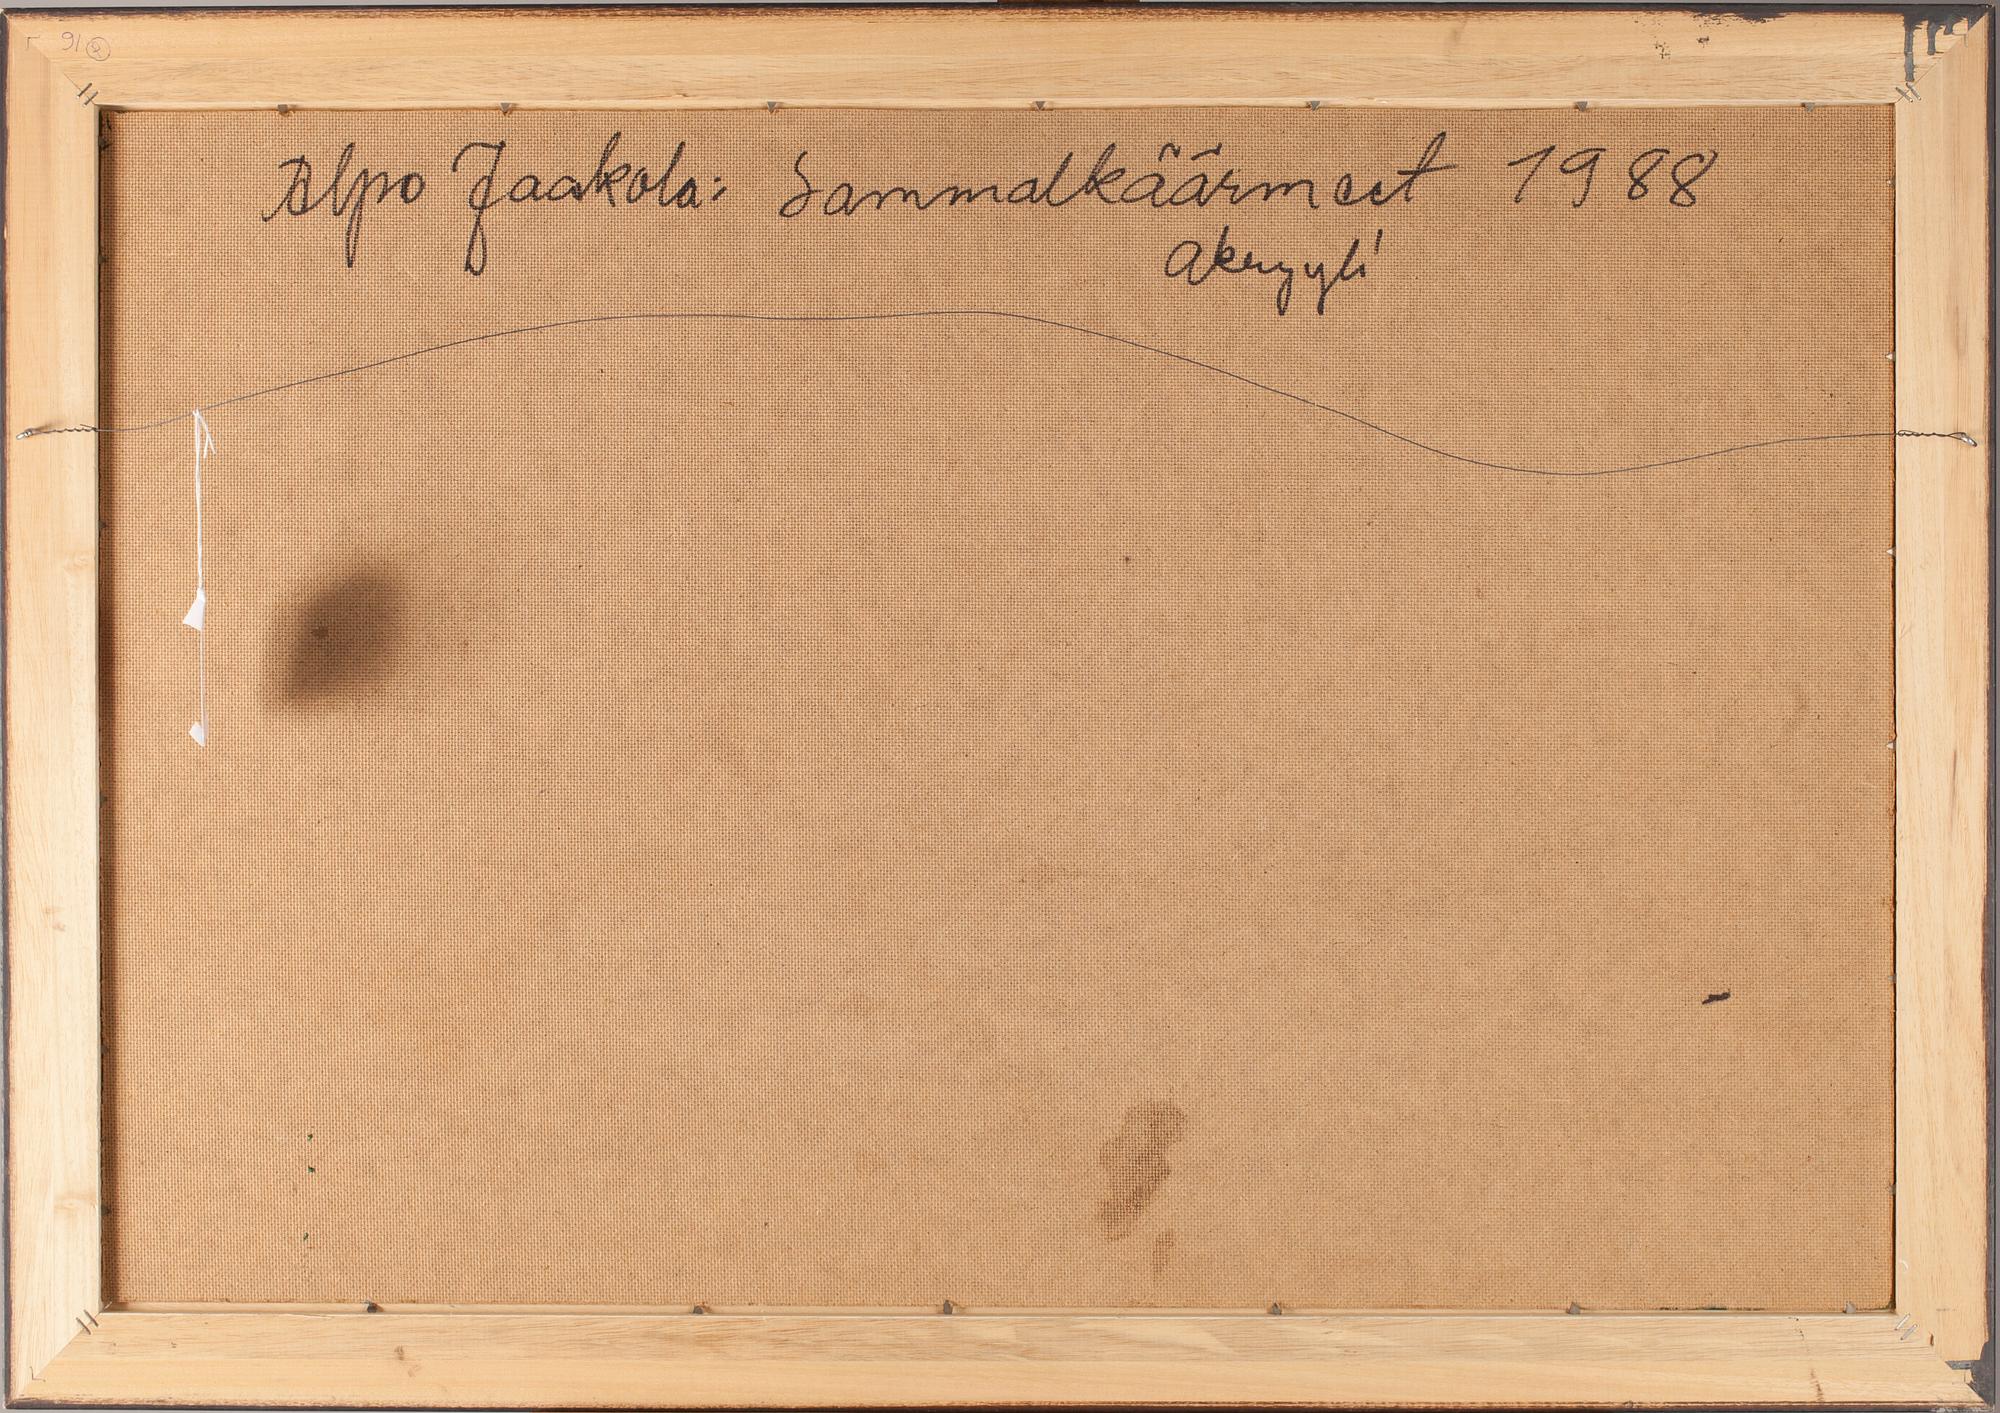 91 2
Alpo Jaakola: Sammalkäärmeet 1988
akryyli